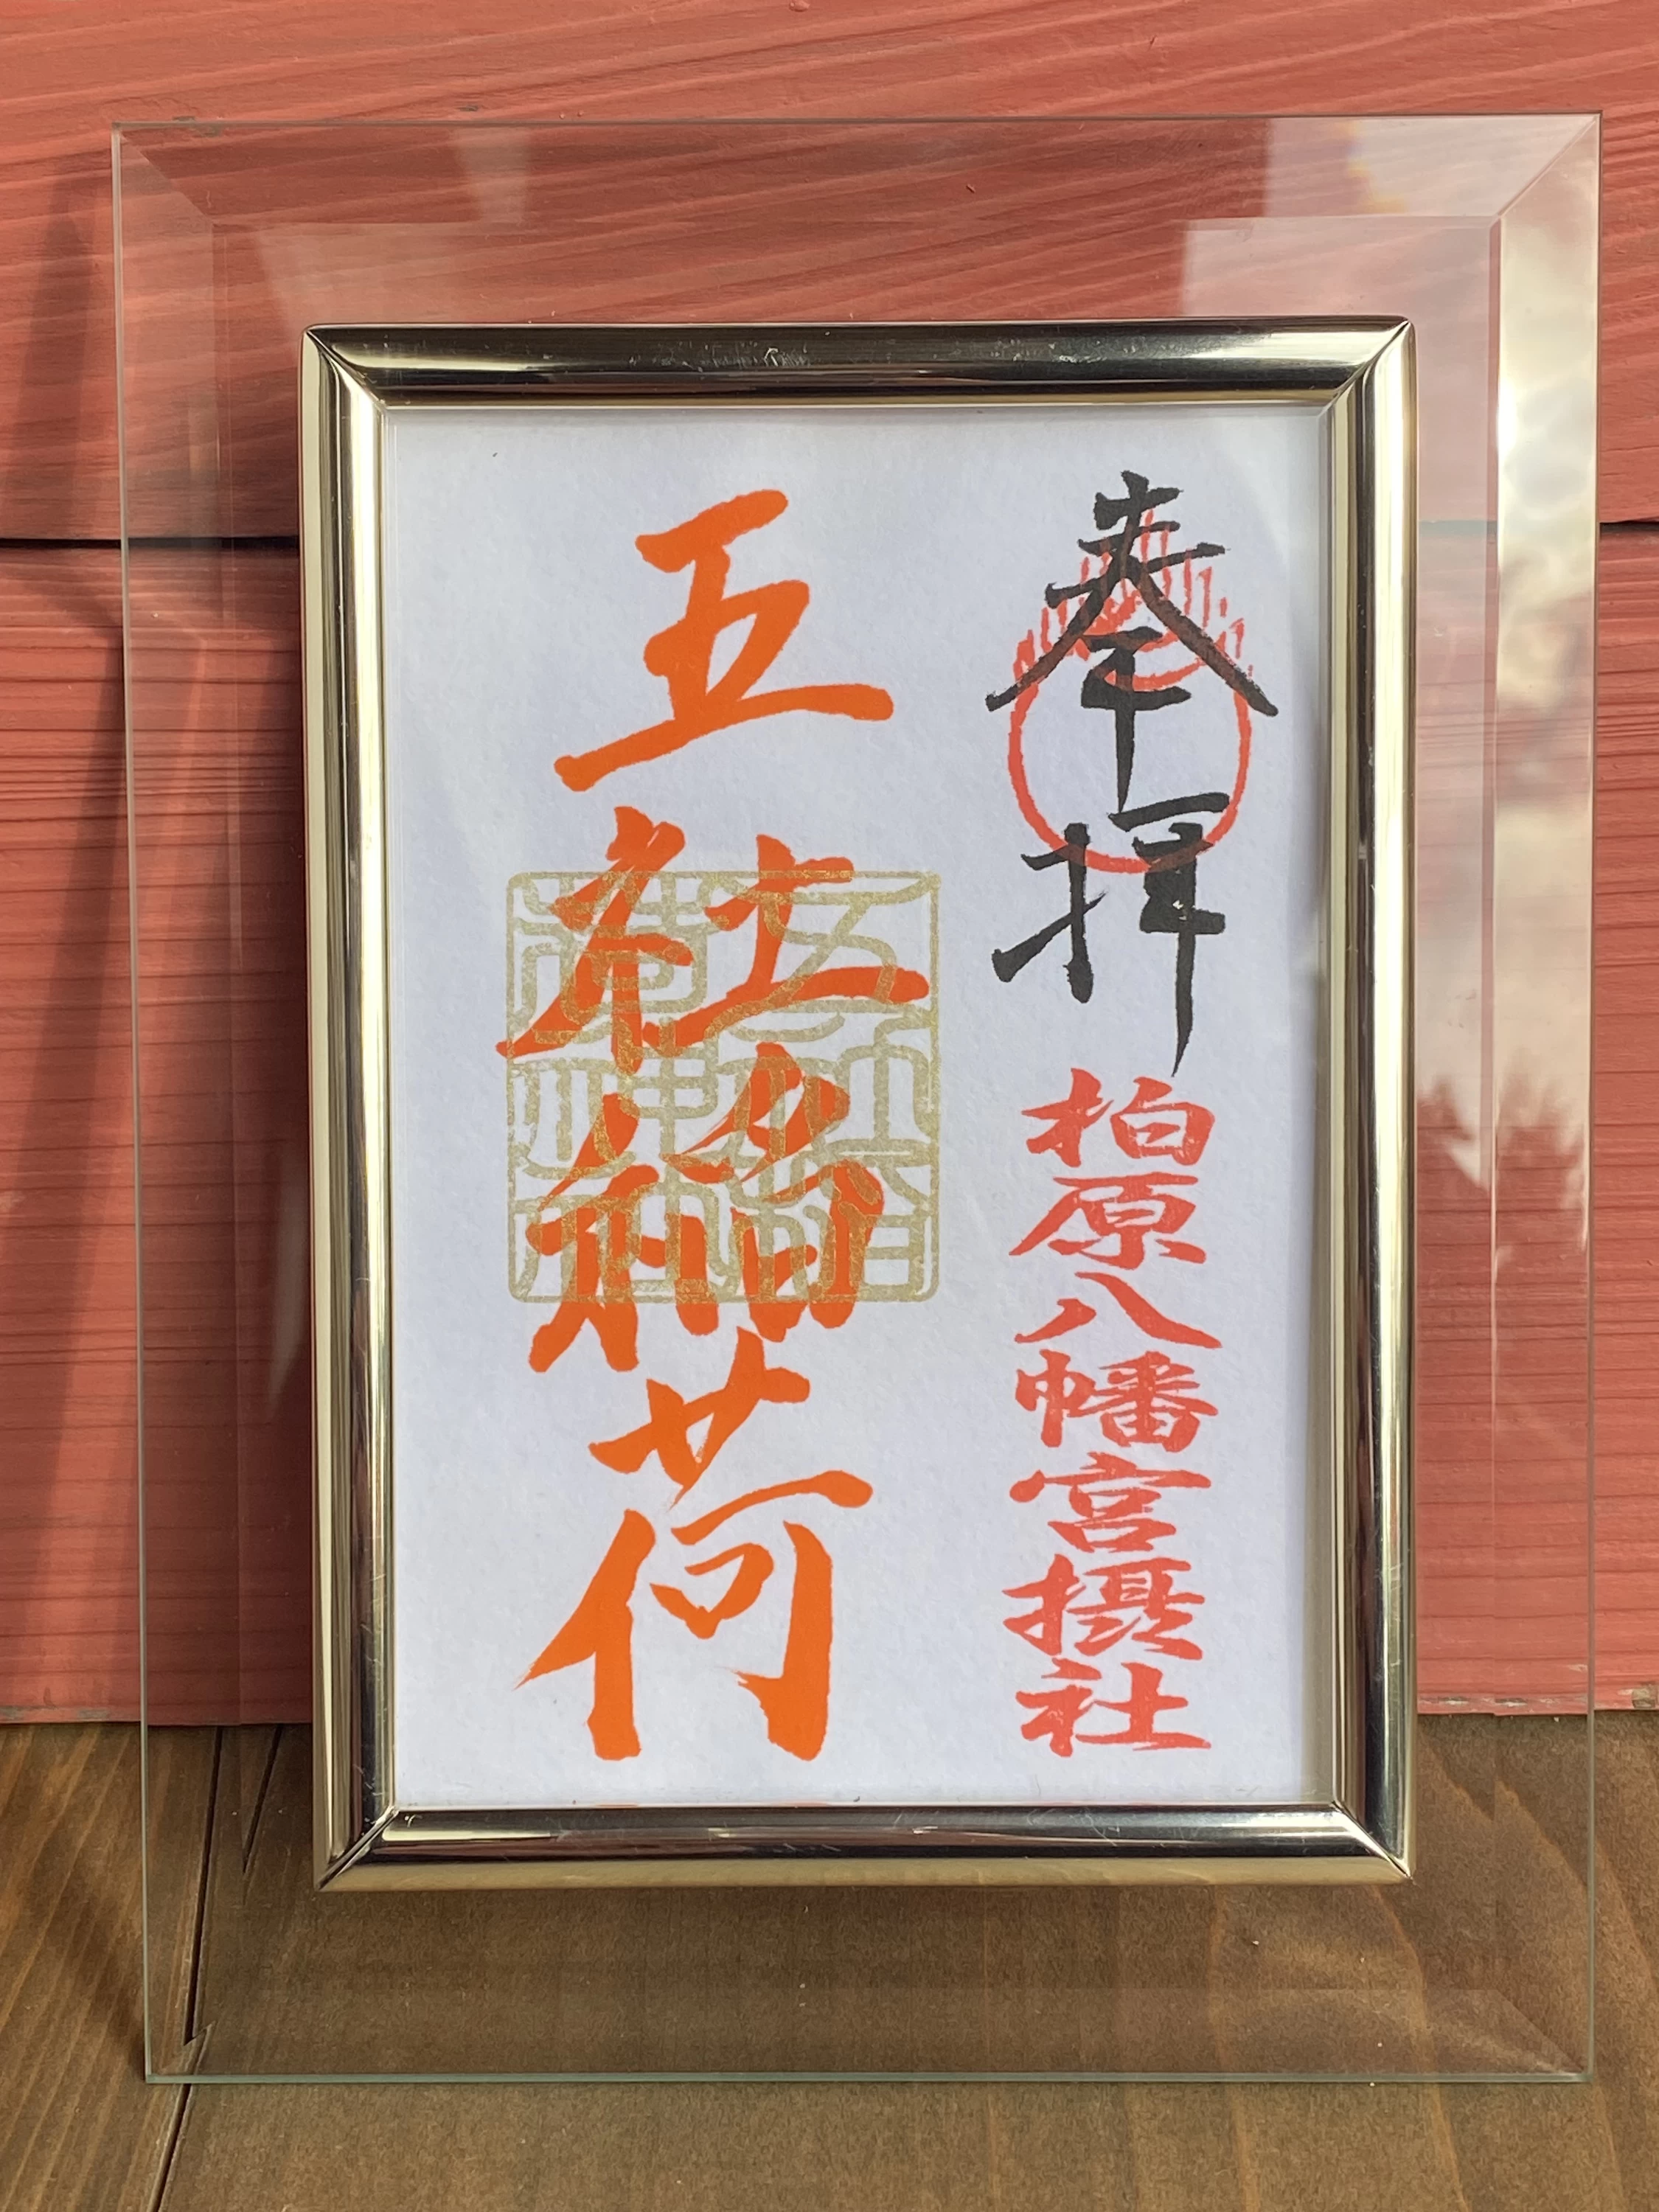 奉拝
柏原八幡宮摂社
五社稲荷